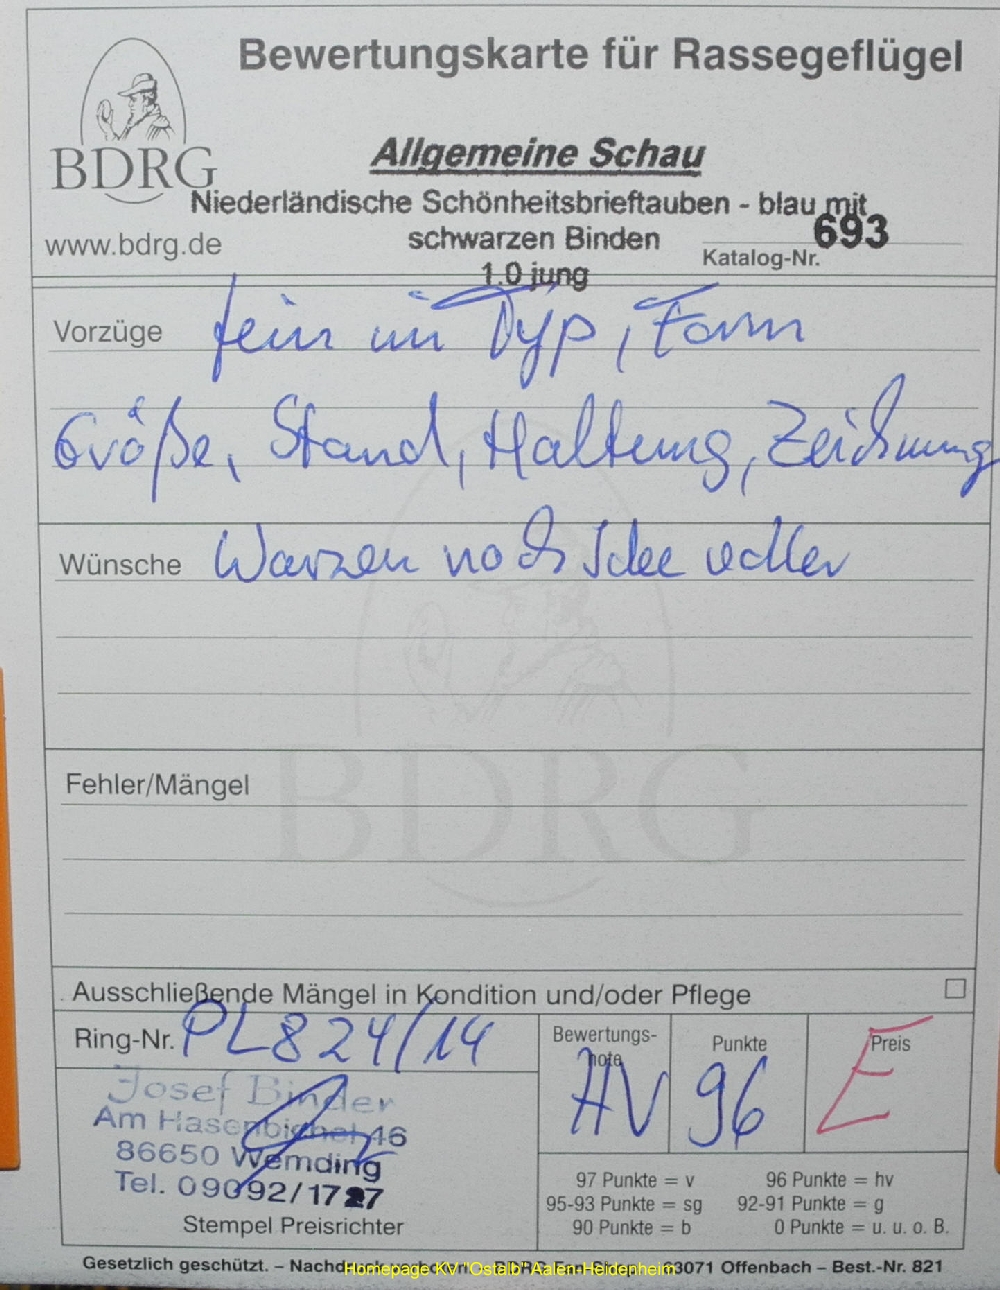 Bewertungskarte für Rassegeflügel
BDRG
Allgemeine Schau
Niederländische Schönheitsbrieftauben - blau mit
schwarzen Binden
693
www.bdrg.de
Katalog-Nr.
1.0 jung
Vorzüge fein im Typ, Form
Größe, Stand, Haltung, Zeichnung
Wünsche Warzen noch Idee edler
BDRG
Fehler/Mängel
Ausschließende Mängel in Kondition und/oder Pflege
Ring-Nr. PL824/14
Bewertungs-
note
HV
Punkte
96
Preis
E
Josef Binder
Am Hasenbichel 46
86650 Wemding
Tel. 09092/1727
Stempel Preisrichter
97 Punkte = v 96 Punkte = hv
95-93 Punkte = sg 92-91 Punkte = g
90 Punkte = b 0 Punkte = u. u. o. B.
Gesetzlich geschützt. – 63071 Offenbach – Best.-Nr. 821
Homepage KV "Ostalb" Aalen-Heidenheim